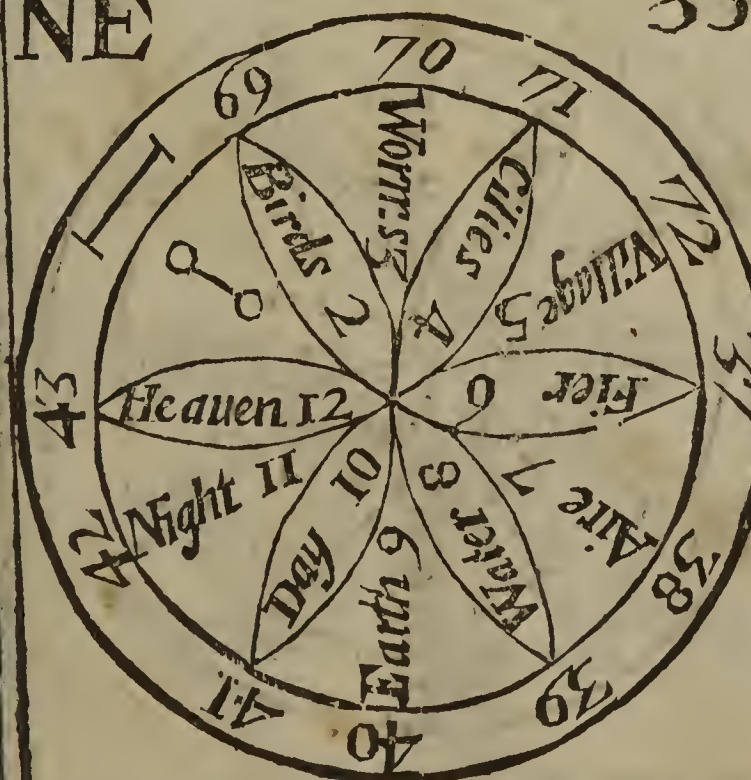 NE
I
69
70
71
72
38
39
40
41
42
43
Birds 2
Worms 3
Cities 4
Village 5
Fier 6
Aire 7
Water 8
Earth 9
Day 10
Night 11
Heauen 12